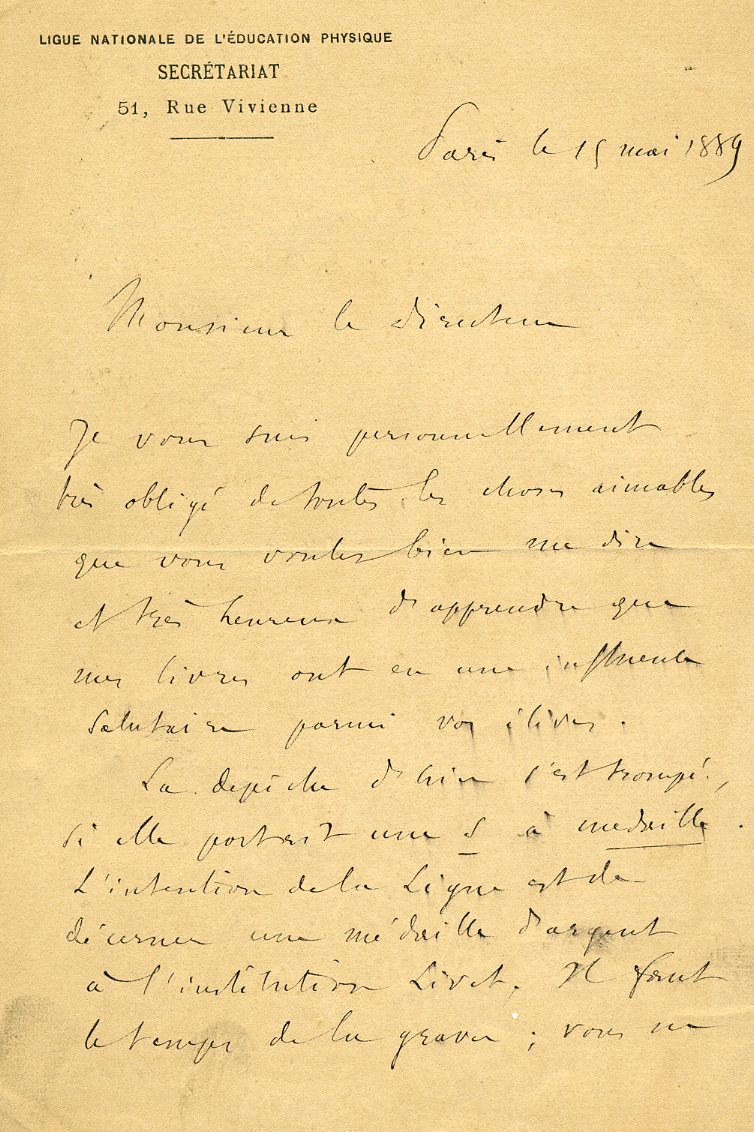 LIGUE NATIONALE DE L'ÉDUCATION PHYSIQUE
SECRÉTARIAT
51, Rue Vivienne
Paris le 15 mai 1889
Monsieur le directeur
Je vous suis personnellement
très obligé de toutes les choses aimables
que vous voulez bien me dire
et très heureux d'apprendre que
mes livres ont eu une influence
salutaire parmi vos élèves.
La depêche d'hier s'est trompé,
si elle portait une s à medaille.
L'intention de la Ligue est de
décerner une médaille d'argent
à l'institution Livet. Il faut
le temps de la graver ; vous ne